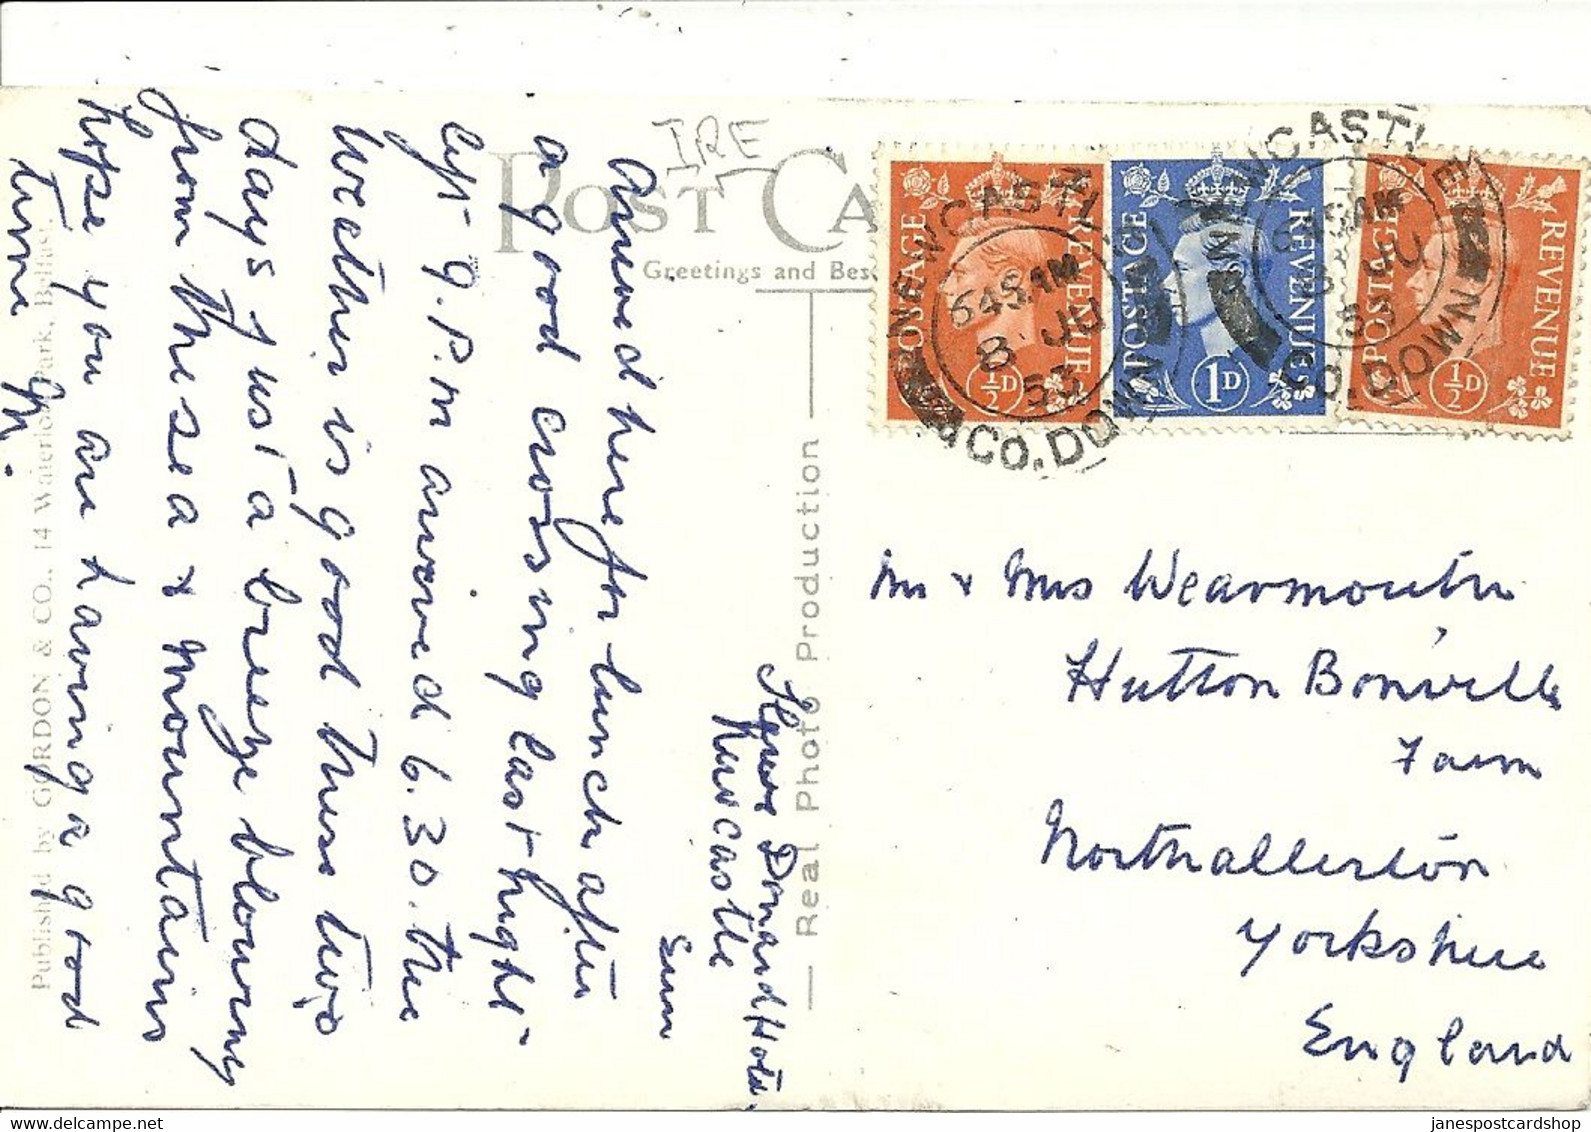 IRE
POST CA
Greetings and Bes
Slieve Donard Hotel
Newcastle
Sun
Arrived here for lunch after
a good crossing last night
left 9.P.M arrived 6.30. the
weather is good these two
days just a breeze blowing
from the sea & mountains
hope you are having a good
time M.
Published by GORDON & CO., 14 Waterloo Park, Belfast.
— Real Photo Production —
POSTAGE REVENUE
½D
POSTAGE REVENUE
1D
POSTAGE REVENUE
½D
NEWCASTLE
645AM
8 JU
53
CO. DOWN
NEWCASTLE
645AM
8 JU
53
CO. DOWN
Mr & Mrs Wearmouth
Hutton Bonville
Farm
Northallerton
Yorkshire
England
janespostcardshop